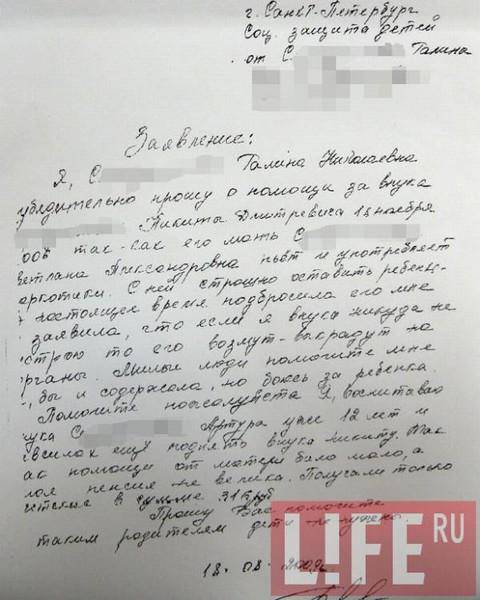 г. Санкт-Петербург
Соц. защита детей
от С Галина
Заявление:
Я, С Галина Николаевна
убедительно прошу о помощи за внука
Никиты Дмитревича 18 ноября
так-как его мать С
ветлана Александровна пьёт и употребляет
аркотики. С ней страшно оставить ребенк-
настоящее время подбросила его мне
заявила, что если я внука никуда не
строю то его возмут-выкрадут на
рганы. Милые люди помогите мне
бы и содержала, но боюсь за ребенка.
Помогите пожалуйста Я, воспитываю
ука С Артура уже 12 лет и
всилах ещё поднять внука Никиту. Так
ак помощи от матери было мало, а
моя пенсия не велика. Получали только
етские в сумме 316 руб
Прошу Вас помогите
таким родителям дети не нужны.
18.08.2009г
L!FE RU